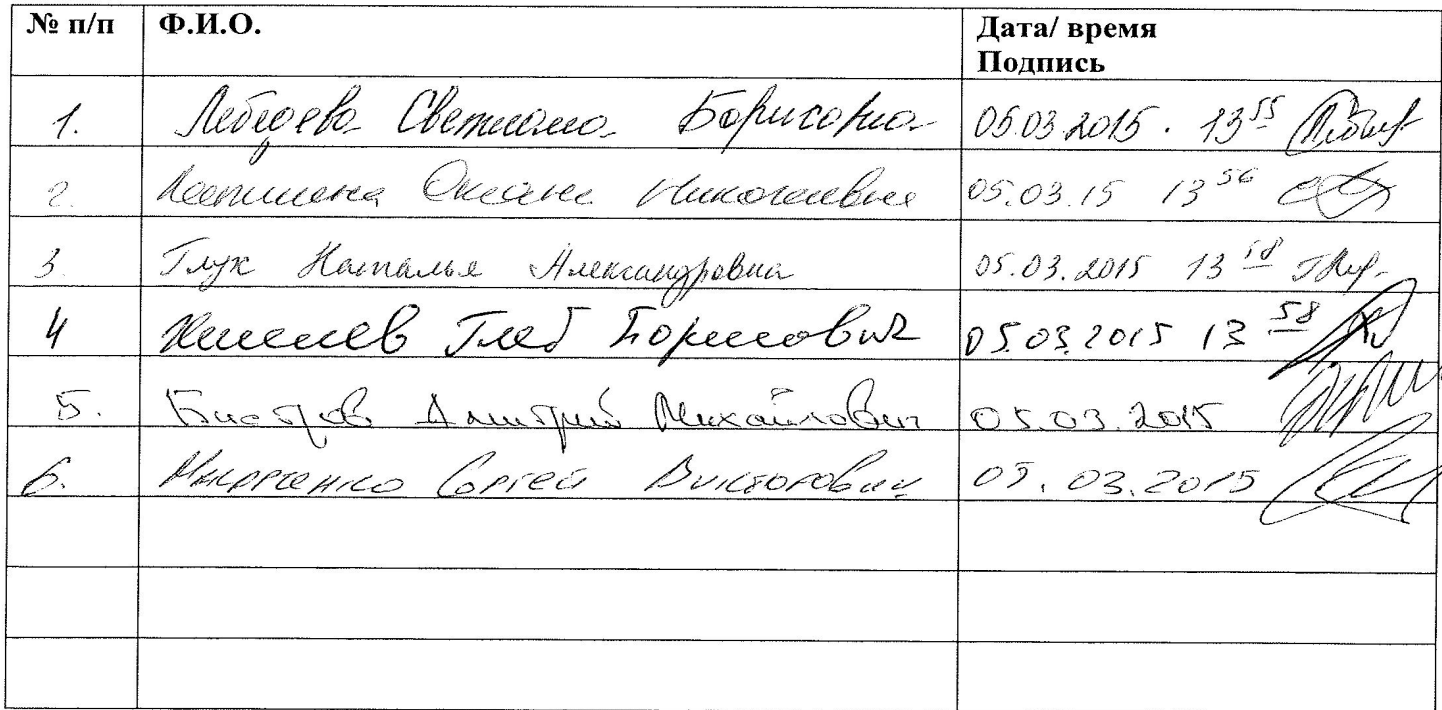 № п/п Ф.И.О. Дата/ время
Подпись
1. Лебедева Светлана Борисовна 05.03.2015. 13 55
2. Оксана Николаевна 05.03.15 13 56
3. Глук Наталья Александровна 05.03.2015 13 58
4 Глеб Борисович 05.03.2015 13 58
5. Быстров Дмитрий Михайлович 05.03.2015
6. Сергей Викторович 05.03.2015